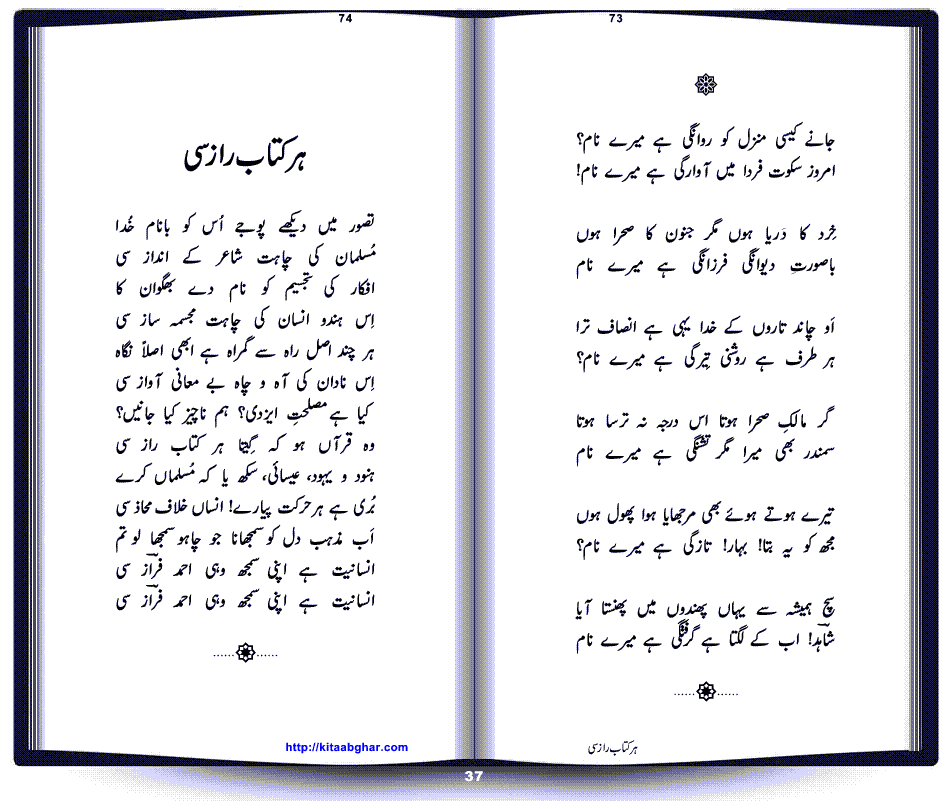 73
جانے کیسی منزل کو روانگی ہے میرے نام؟
امروز سکوت فردا میں آوارگی ہے میرے نام!
خِرد کا دَریا ہوں مگر جنون کا صحرا ہوں
باصورتِ دیوانگی فرزانگی ہے میرے نام
اَو چاند تاروں کے خدا یہی ہے انصاف ترا
ہر طرف ہے روشنی تِیرگی ہے میرے نام؟
گر مالکِ صحرا ہوتا اس درجہ نہ ترسا ہوتا
سمندر بھی میرا مگر تشنگی ہے میرے نام
تیرے ہوتے ہوئے بھی مرجھایا ہوا پھول ہوں
مجھ کو یہ بتا! بہار! تازگی ہے میرے نام؟
سچ ہمیشہ سے یہاں پھندوں میں پھنستا آیا
شاہدؔ! اب کے لگتا ہے گرفتگی ہے میرے نام
ہر کتاب راز سی
74
ہر کتاب راز سی
تصور میں دیکھے پوجے اُس کو بانام خُدا
مُسلمان کی چاہت شاعر کے انداز سی
افکار کی تجسیم کو نام دے بھگوان کا
اِس ہندو انسان کی چاہت مجسمہ ساز سی
ہر چند اصل راہ سے گمراہ ہے ابھی اصلاً نگاہ
اِس نادان کی آہ و چاہ بے معانی آواز سی
کیا ہے مصلحتِ ایزدی؟ ہم ناچیز کیا جانیں؟
وہ قرآں ہو کہ گیتا ہر کتاب راز سی
ہنود و یہود، عیسائی، سکھ یا کہ مُسلماں کرے
بُری ہے ہر حرکت پیارے! انساں خلاف محاذ سی
اَب مذہب دل کو سمجھانا جو چاہو سمجھا لو تم
انسانیت ہے اپنی سمجھ وہی احمد فرازؔ سی
انسانیت ہے اپنی سمجھ وہی احمد فرازؔ سی
http://kitaabghar.com
37